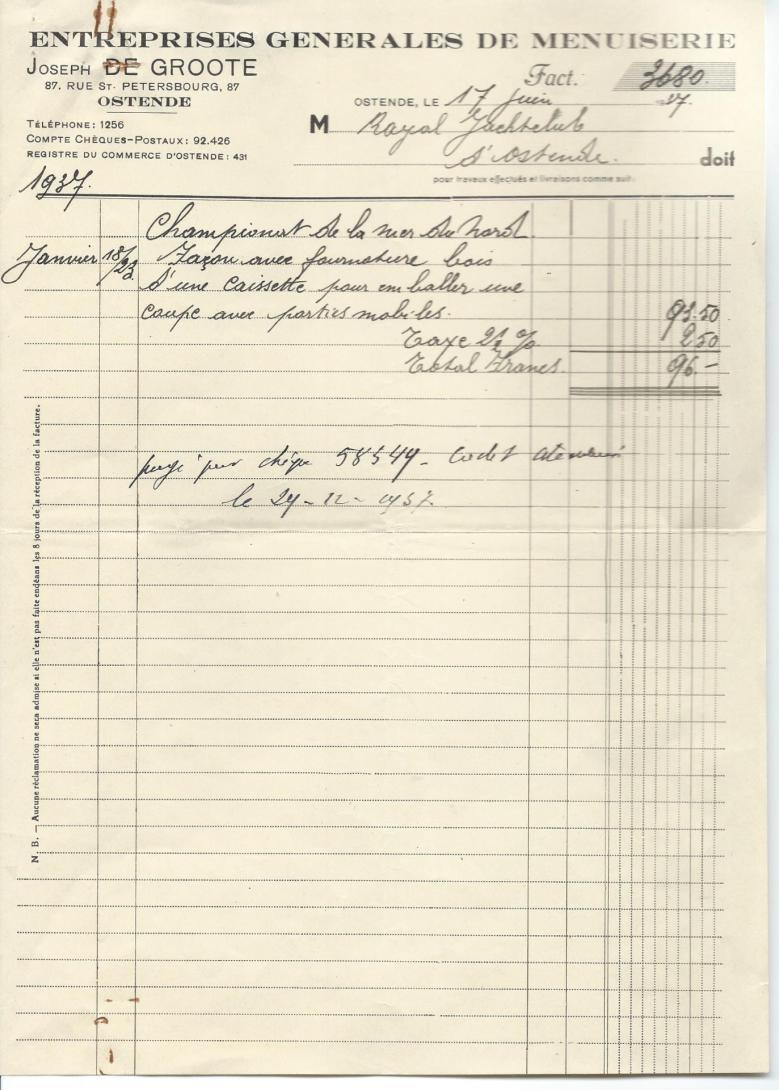 ENTREPRISES GENERALES DE MENUISERIE
JOSEPH DE GROOTE
87, RUE ST. PETERSBOURG, 87
OSTENDE
TÉLÉPHONE : 1256
COMPTE CHÈQUES-POSTAUX : 92.426
REGISTRE DU COMMERCE D'OSTENDE : 431
Fact. 3680.
OSTENDE, LE 17 Juin 1937.
M Royal Yachtclub
d'Ostende. doit
pour travaux effectués et livraisons comme suit:
1937.
Championat de la mer du Nord.
Janvier 18/23 Façon avec fourniture bois
d'une caissette pour emballer une
coupe avec parties mobiles. 93.50
Taxe 2½ % 2.50
Total Francs. 96.-
payé par chèque 58549 - Credit
le 29-12-1937.
N. B. — Aucune réclamation ne sera admise si elle n'est pas faite endéans les 8 jours de la réception de la facture.